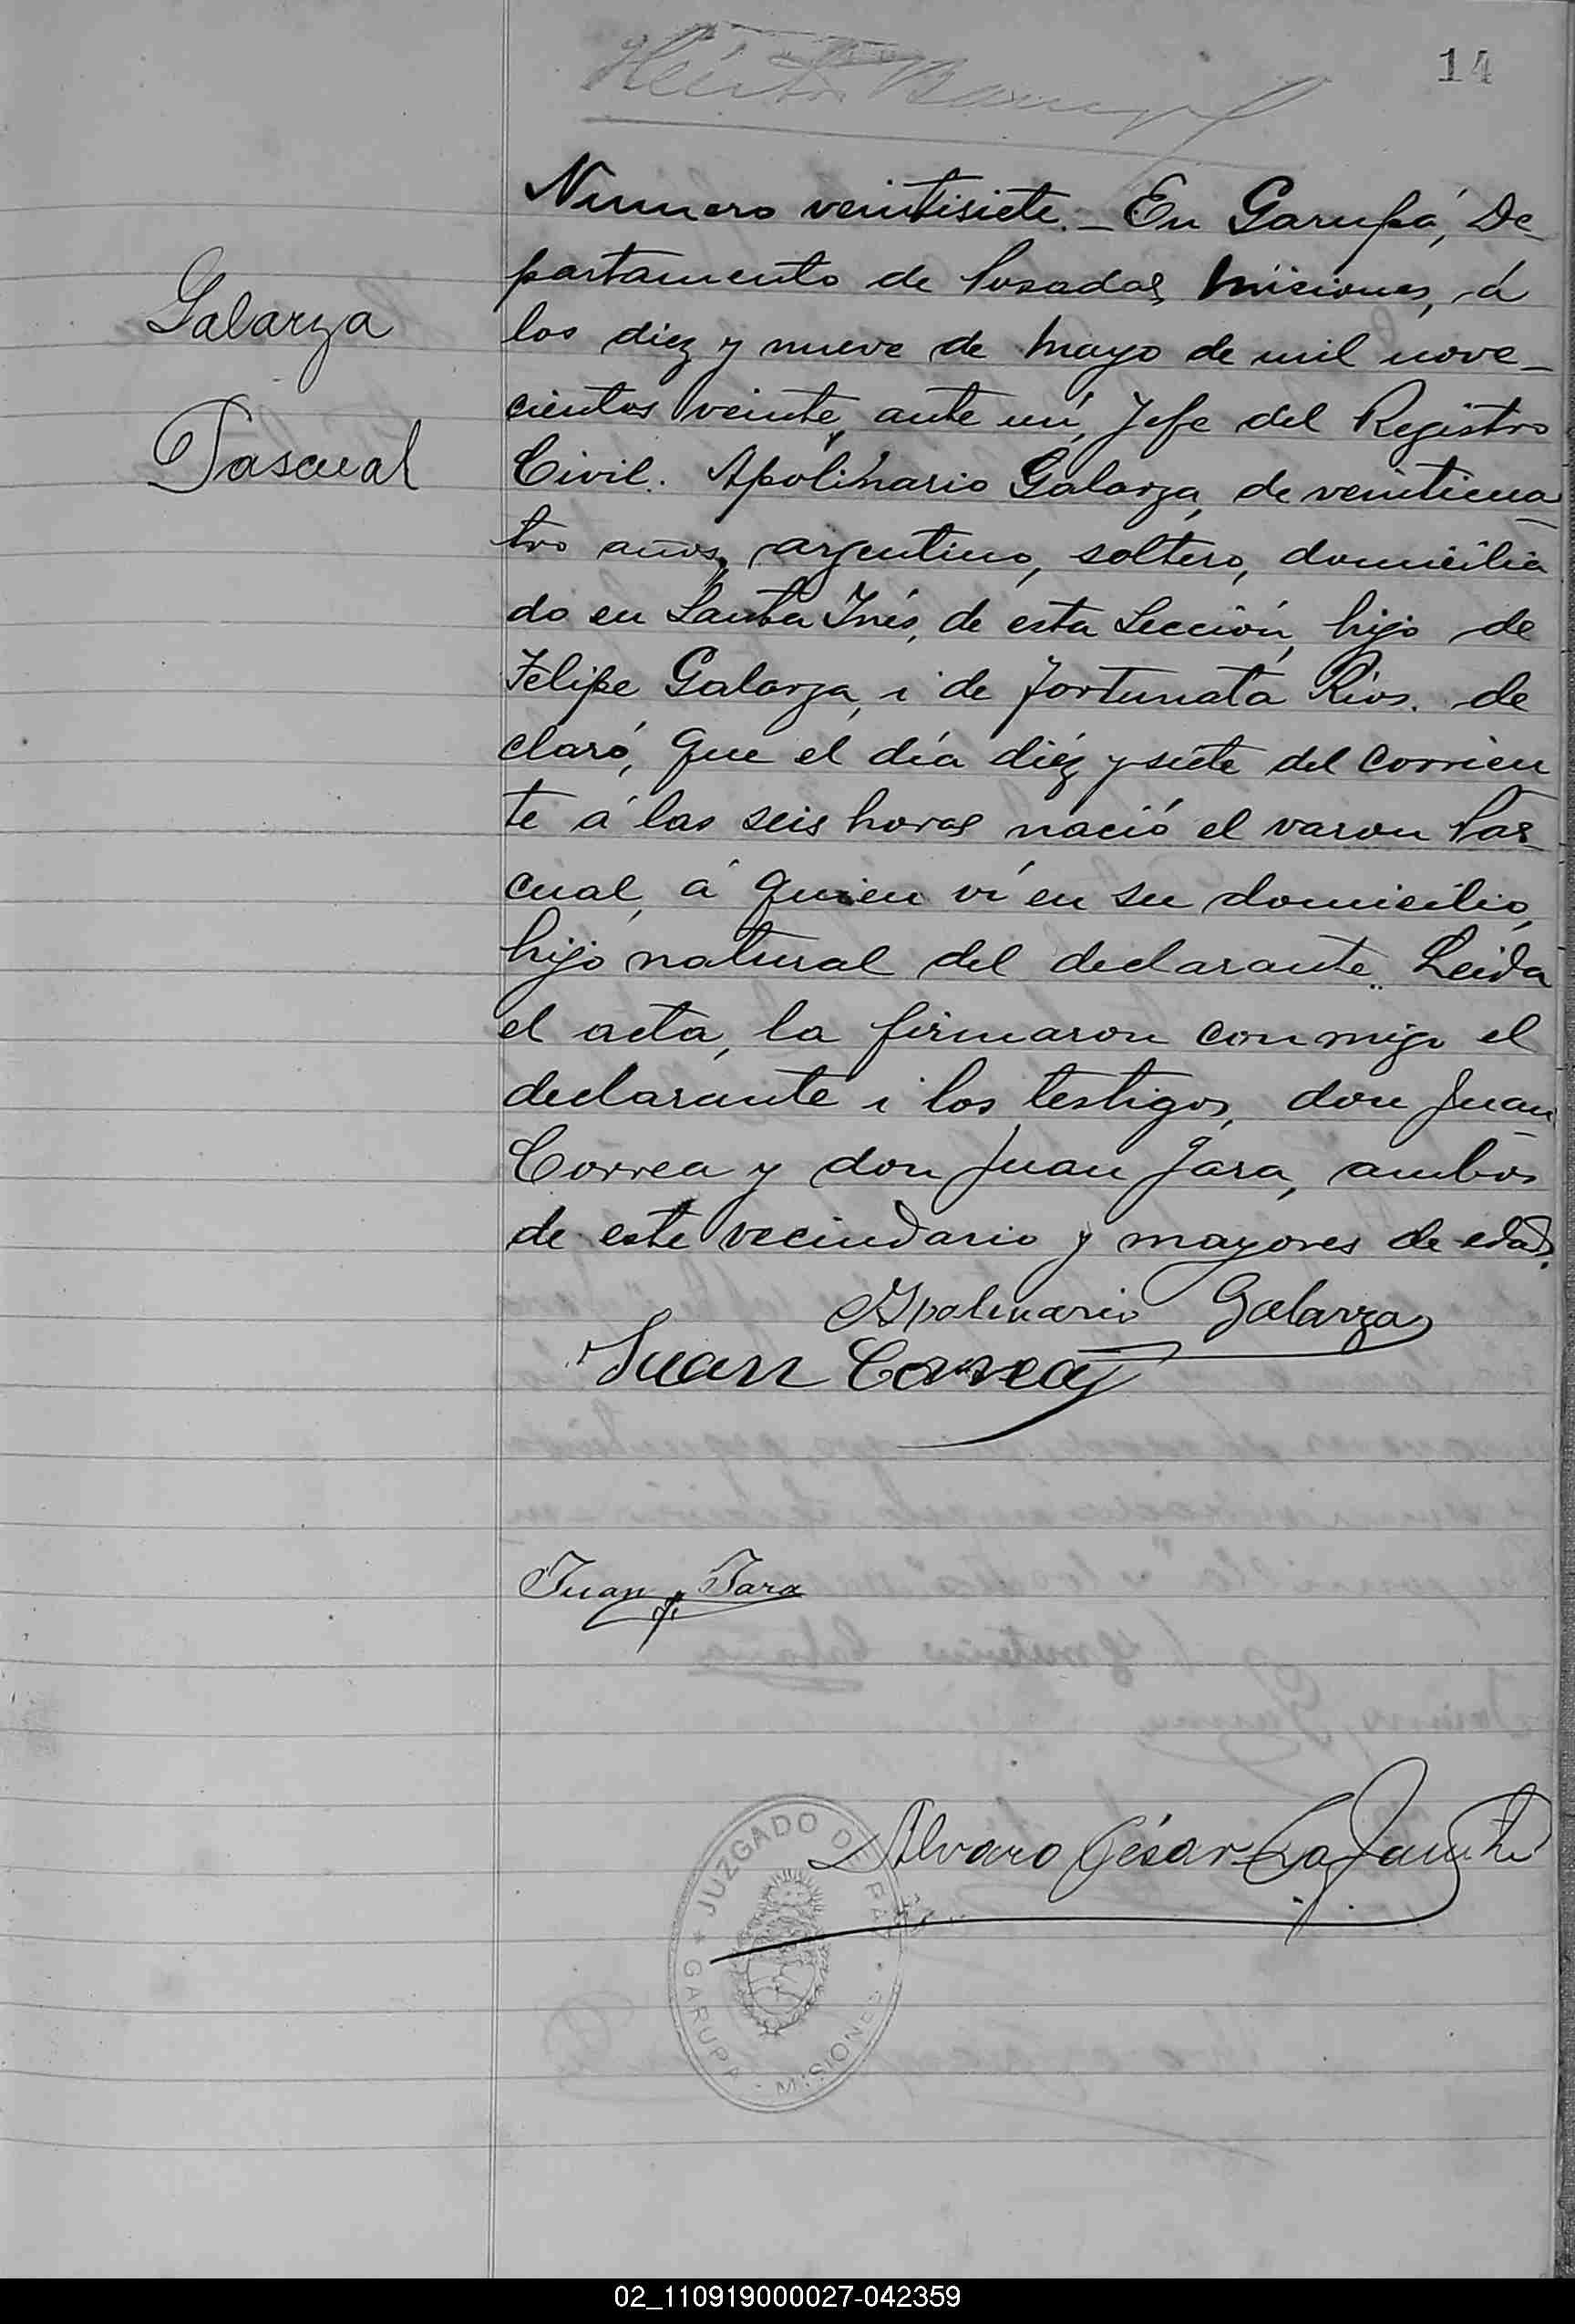 14
Numero veintisiete.– En Garupá, De-
partamento de Posadas, Misiones, á
Galarza
los diez y nueve de Mayo de mil nove-
cientos veinte, ante mí, Jefe del Registro
Pascual
Civil. Apolinario Galarza, de veinticua-
tro años, argentino, soltero, domicilia
do en Santa Inés, de esta Sección, hijo de
Felipe Galarza, i de Fortunata Rios. de
claró, Que el día diéz y siete del corrien
te á las seis horas nació el varon Pas-
cual, á quien ví en su domicilio,
hijo natural del declarante. Leida
el acta, la firmaron conmigo el
declarante i los testigos, don Juan
Correa y don Juan Jara, ambos
de este vecindario y mayores de edad.
Apolinario Galarza
Juan Correa
Juan Jara
Alvaro César
JUZGADO DE PAZ
GARUPA - MISIONES
02_110919000027-042359